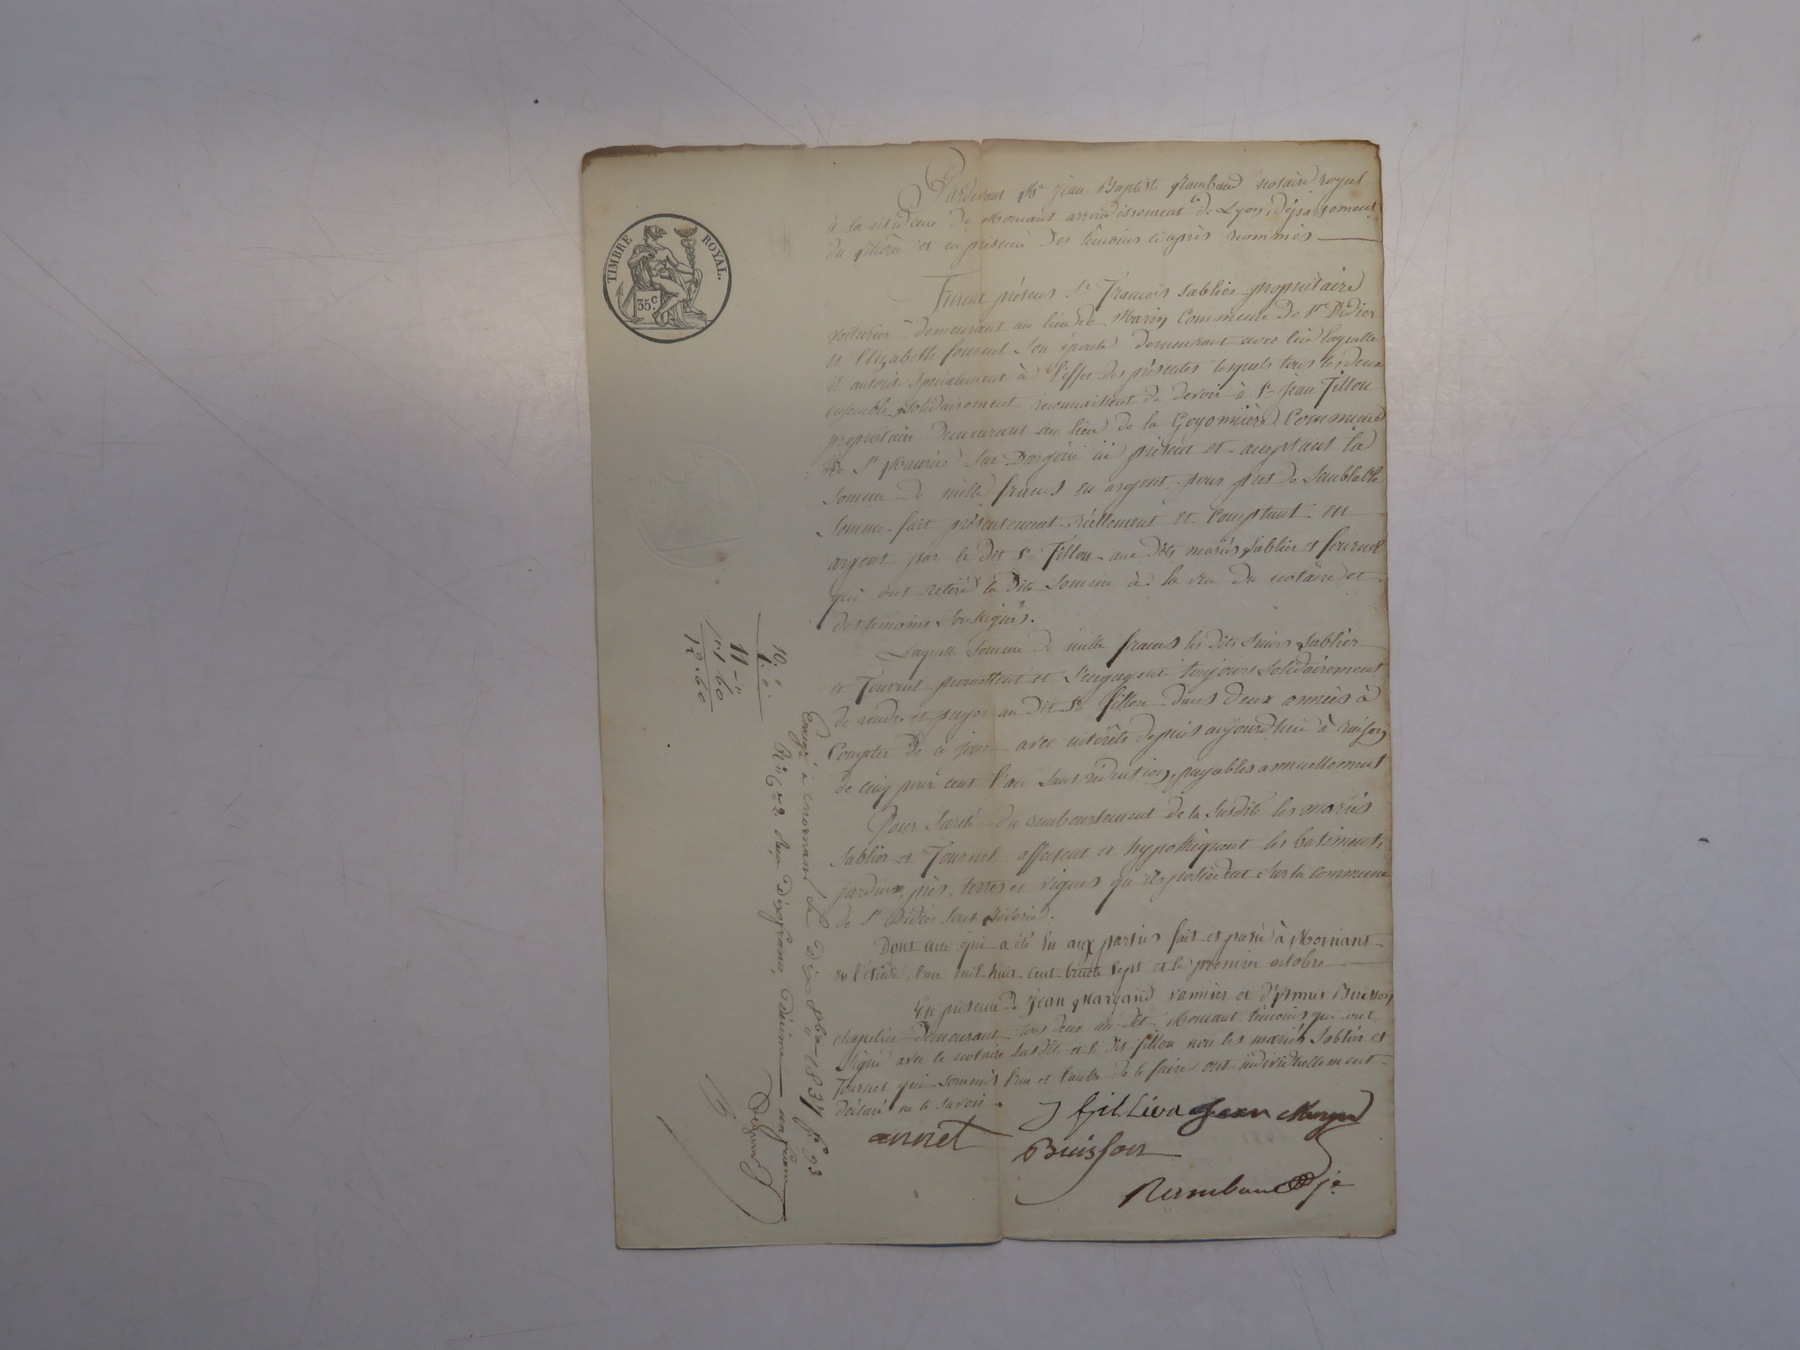 TIMBRE ROYAL.
35c.
Pardevant Me Jean Baptiste Rambaud notaire royal
à la résidence de Mornant arrondissement de Lyon, département
du Rhône et en présence des témoins ci après nommés
Furent présens Sr François Sablier propriétaire
voiturier demeurant au lieu de Marin Commune de St Didier
et Elizabeth fournel son épouse demeurant avec lui laquelle
il autorise spécialement à l'effet des présentes lesquels tous les deux
ensemble solidairement reconnaissent de devoir à Sr Jean Fillou
propriétaire demeurant au lieu de la Goyonnière Commune
de St Maurice sur Dargoire ici présent et acceptant la
somme de mille francs en argent pour pret de semblable
somme fait présentement réellement et comptant en
argent par le dit Sr Fillou aux dits mariés Sablier et fournel
qui ont retiré la dite somme à la vu du notaire et
des temoins soussignés.
Laquelle somme de mille francs les dits Sablier
et Fournel promettent et s'engagent toujours solidairement
de rendre et payer au dit Sr fillou dans deux années à
Compter de ce jour avec intérêts depuis aujourdhui à raison
de cinq pour cent l'an sans réduction, payables annuellement
Pour sureté du remboursement de la susdite les mariés
Sablier et Fournel affectent et hypothèquent les batiments,
jardins, prés, terres et vignes qu'ils possèdent sur la commune
de St Didier sous Riverie.
Dont acte qui a été lu aux parties fait et passé à Mornant
en l'étude, l'an mil huit cent trente sept et le premier octobre
En présence de Jean Margand vannier et Buisson
chapelier demeurant tous deux au dit Mornant témoins qui ont
signé avec le notaire susdit et le dit fillou non les mariés Sablier et
Fournel qui sommés l'un et l'autre de le faire ont individuellement
déclaré ne le savoir.
Jean
Buisson
Rambaud
10."
1."
11-"
1 60
12.60
à Mornant le dix 8bre 1837 fo 93
Reçu dix francs, Décime un franc